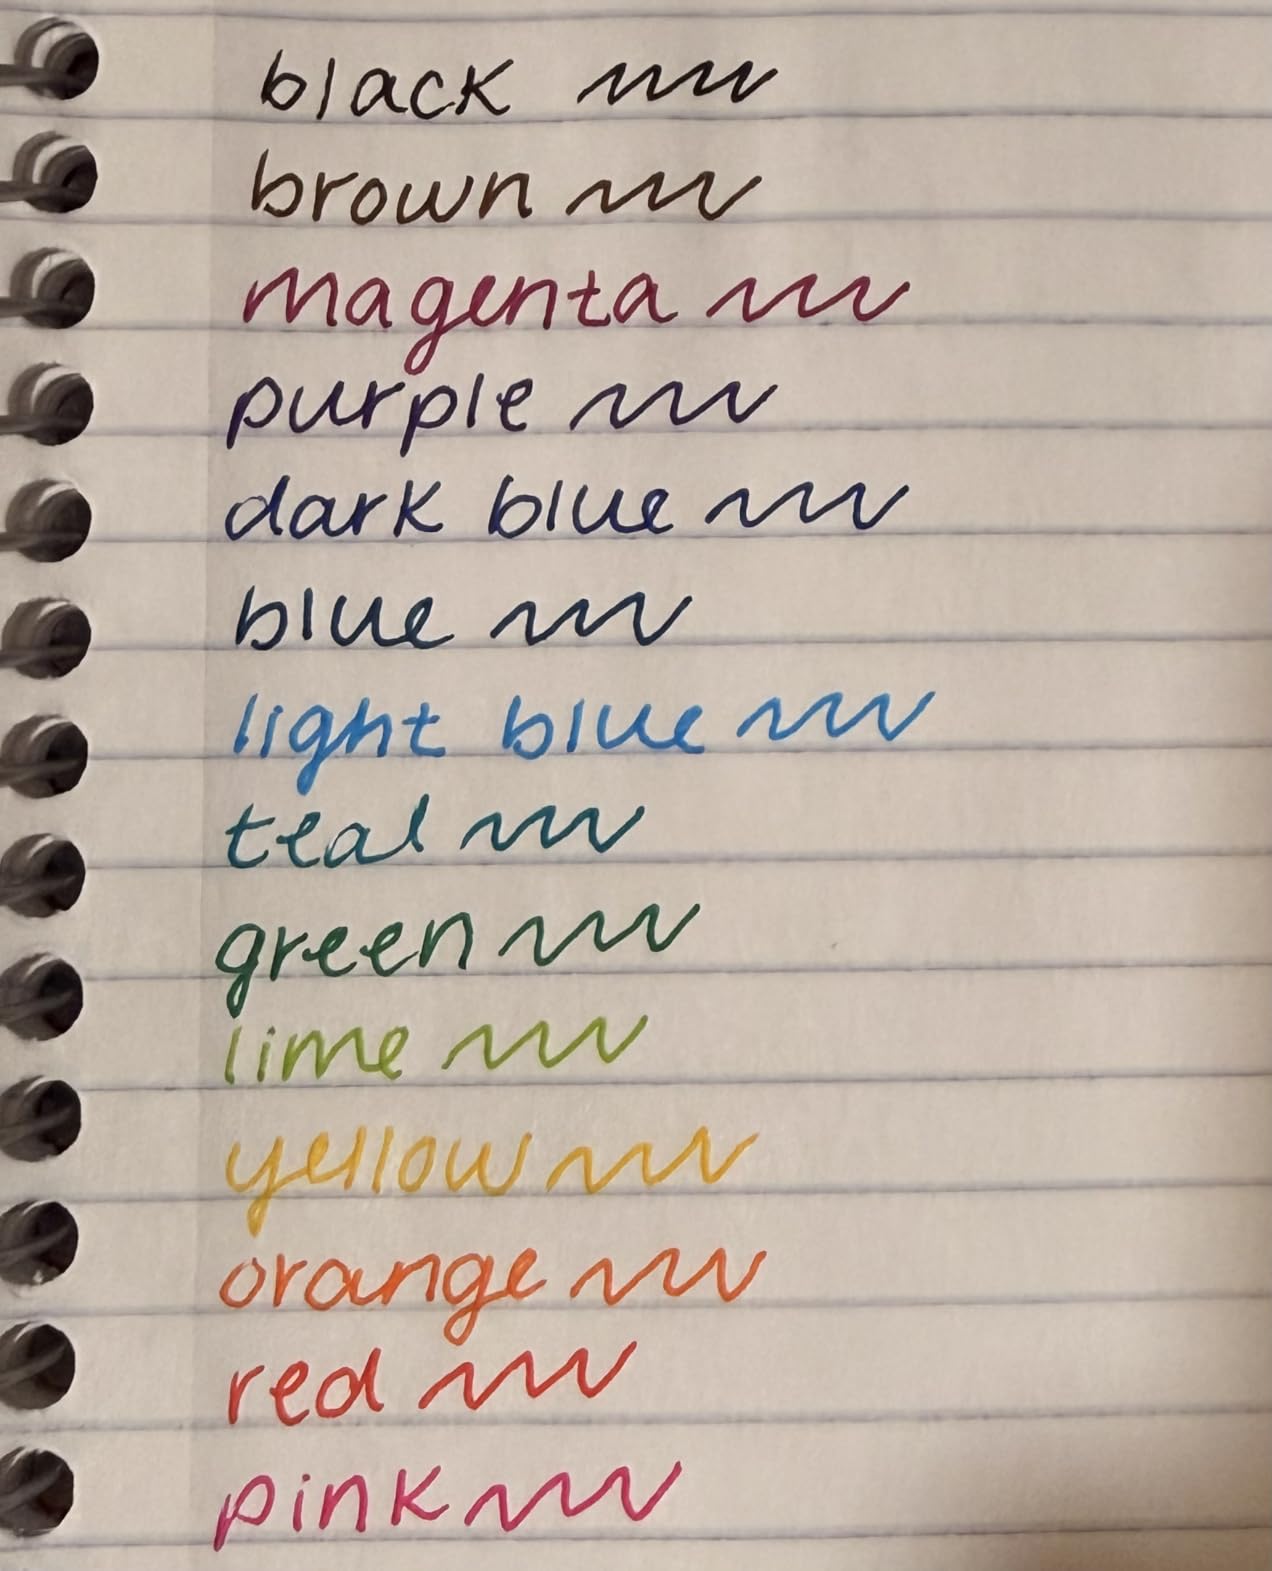 black
brown
magenta
purple
dark blue
blue
light blue
teal
green
lime
yellow
orange
red
pink